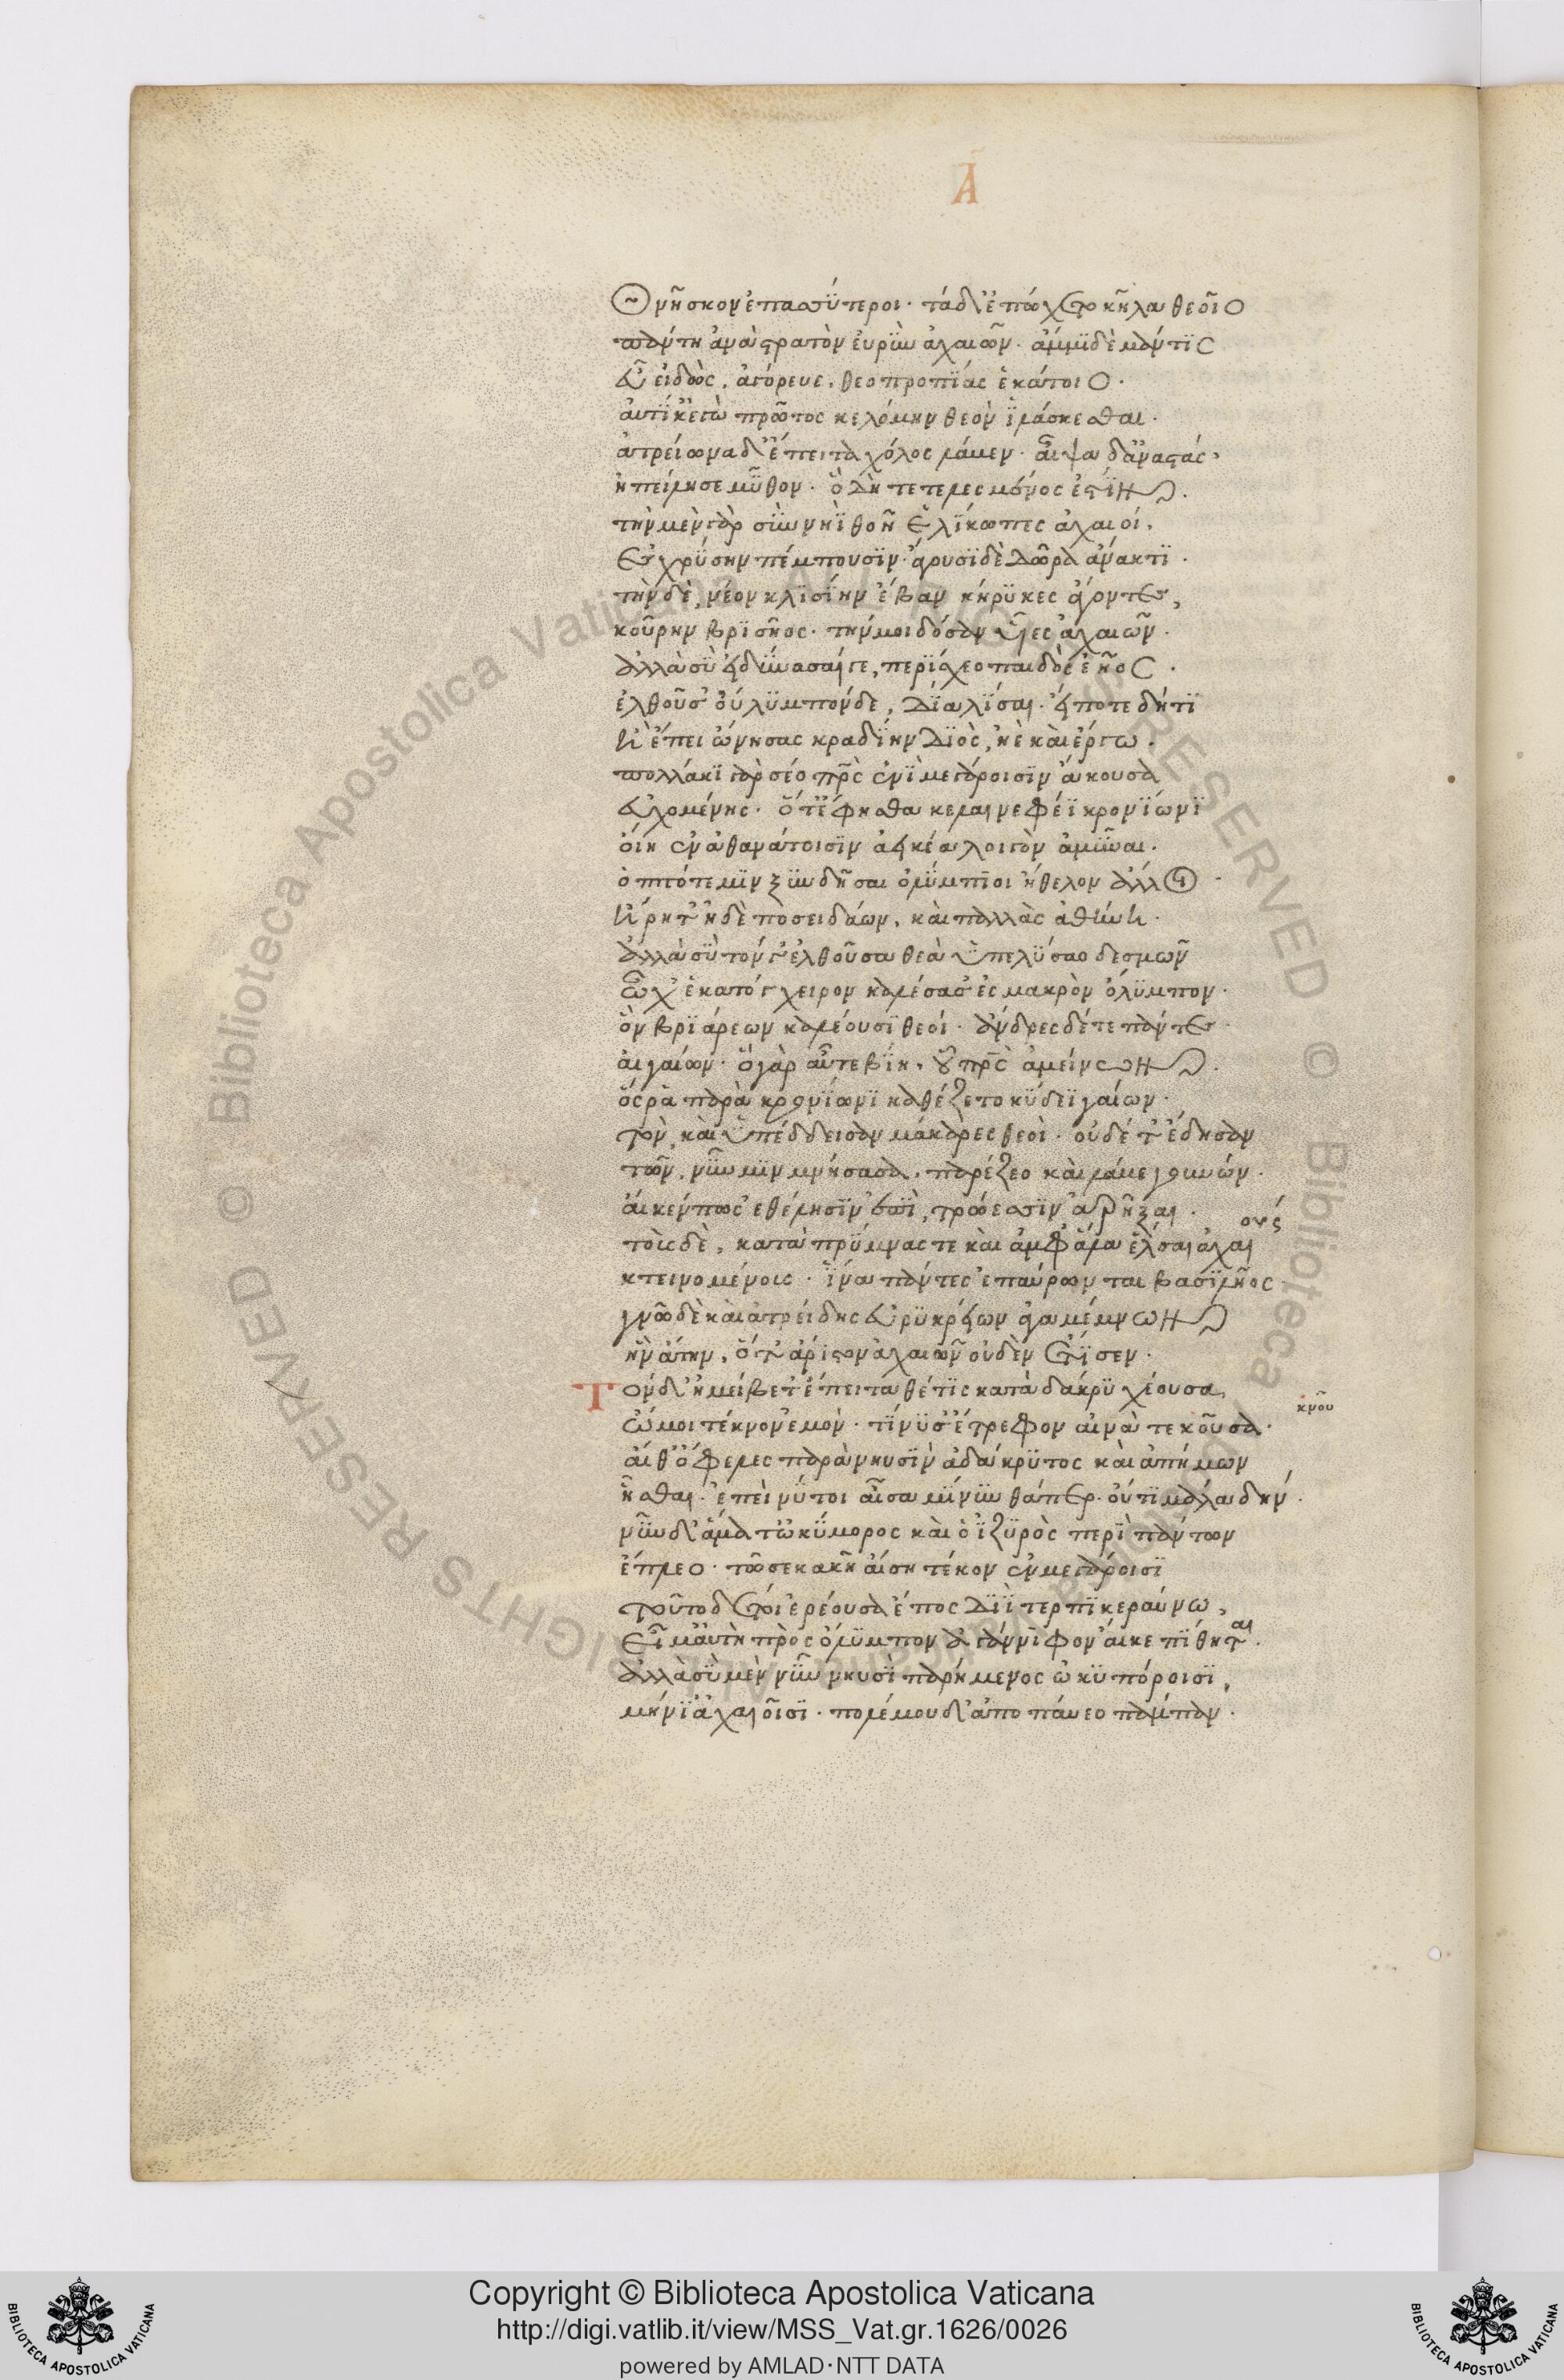 Ᾱ
Θνῆσκον ἐπασσΰτεροι· τάδ' ἐπώχετο κῆλα θεοῖο
πάντη ἀνὰ στρατὸν εὐρὺν ἀχαιῶν· ἄμμϊ δὲ μάντϊς
εὖ εἰδὼς, ἀγόρευε, θεοπροπΐας ἑκάτοιο·
ἀυτΐκ' ἐγὼ πρῶτος κελόμην θεὸν ἱλάσκεσθαι·
ἀτρείωνα δ' ἔπειτα χόλος λάβεν· αἶψα δ' ἀναστάς,
ἠπείλησε μῦθον· ὃ δὴ τετελεσμένος ἐστΐν.
τὴν μὲν γὰρ σὺν νηῒ θοῇ ἑλΐκωπες ἀχαιοί,
ἐς χρύσην πέμπουσϊν· ἄγουσϊ δὲ δῶρα ἄνακτϊ·
τὴν δὲ, νέον κλϊσΐηθεν ἔβαν κήρϋκες ἄγοντες,
κούρην βρϊσῆος· τήν μοι δόσαν υἷες ἀχαιῶν·
ἀλλὰ σὺ εἰ δύνασαί γε, περΐσχεο παιδὸς ἑῆος·
ἐλθοῦσ' οὔλϋμπόνδε, δΐα λΐσαι· εἴποτε δή τϊ
ἢ ἔπει ὤνησας κραδΐην δϊὸς, ἠὲ καὶ ἔργω·
πολλάκϊ γάρ σέο πρ̅ς ἐνὶ μεγάροισϊν ἄκουσα
εὐχομένης· ὅτ' ἔφησθα κελαινεφέϊ κρονΐωνϊ
οἴη ἐν ἀθανάτοισϊν ἀεικέα λοιγὸν ἀμῦναι·
ὁππότε μϊν ξυνδῆσαι ὀλύμπϊοι ἤθελον ἄλλοι·
ἥρη τ' ἠδὲ ποσειδάων, καὶ παλλὰς ἀθήνη·
ἀλλὰ σὺ τόν γ' ἐλθοῦσα θεὰ ὑπελύσαο δεσμῶν
ὦχ' ἑκατόγχειρον καλέσασ' ἐς μακρὸν ὄλυμπον·
ὃν βρϊάρεων καλέουσϊ θεοί· ἄνδρες δέ τε πάντες
αἰγαίων· ὃ γὰρ αὖτε βΐη, οὗ πρ̅ς ἀμείνων.
ὅς ῥα παρὰ κρονΐωνϊ καθέζετο κύδεϊ γαίων·
τὸν καὶ ὑπέδδεισαν μάκαρες θεοὶ· οὐδέ τ' ἔδησαν
τῶν, νῦν μϊν μνήσασα, παρέζεο καὶ λάβε γουνών·
αἴ κέν πως ἐθέλησϊν ἐπὶ, τρώεσσϊν ἀρῆξαι·
τοὺς δὲ, κατὰ πρύμνας τε καὶ ἀμφ' ἅλα ἔλσαι ἀχαιούς
κτεινομένους· ἵνα πάντες ἐπαύρωνται βασϊλῆος
γνῶ δὲ καὶ ἀτρείδης εὐρϋκρείων ἀγαμέμνων
ἣν ἄτην, ὅτ' ἄριστον ἀχαιῶν οὐδὲν ἔτϊσεν·
Τὸν δ' ἠμείβετ' ἔπειτα θέτϊς κατὰ δάκρϋ χέουσα,
ὤμοι τέκνον ἐμὸν· τΐ νύ σ' ἔτρεφον αἰνὰ τεκοῦσα·
κνου
αἴθ' ὄφελες παρὰ νηυσϊν ἀδάκρϋτος καὶ ἀπήμων
ἧσθαι· ἐπεὶ νύ τοι αἶσα μΐνυνθά περ· οὔτϊ μάλα δήν·
νῦν δ' ἅμα τ' ὠκύμορος καὶ ὀϊζϋρὸς περὶ πάντων
ἔπλεο· τῶ σε κακῆ αἴση τέκον ἐν μεγάροισϊ
τοῦτο δέ τοι ἐρέουσα ἔπος δϊῒ τερπϊκεραύνω,
εἶμ' αὐτὴ πρὸς ὄλϋμπον ἀγάννϊφον αἴ κε πΐθηται·
ἀλλὰ σὺ μὲν νῦν νηυσϊ παρήμενος ὠκϋπόροισϊ,
μήνϊ' ἀχαιοῖσϊ· πολέμου δ' ἀποπάυεο πάμπαν·
Copyright © Biblioteca Apostolica Vaticana
http://digi.vatlib.it/view/MSS_Vat.gr.1626/0026
powered by AMLAD·NTT DATA